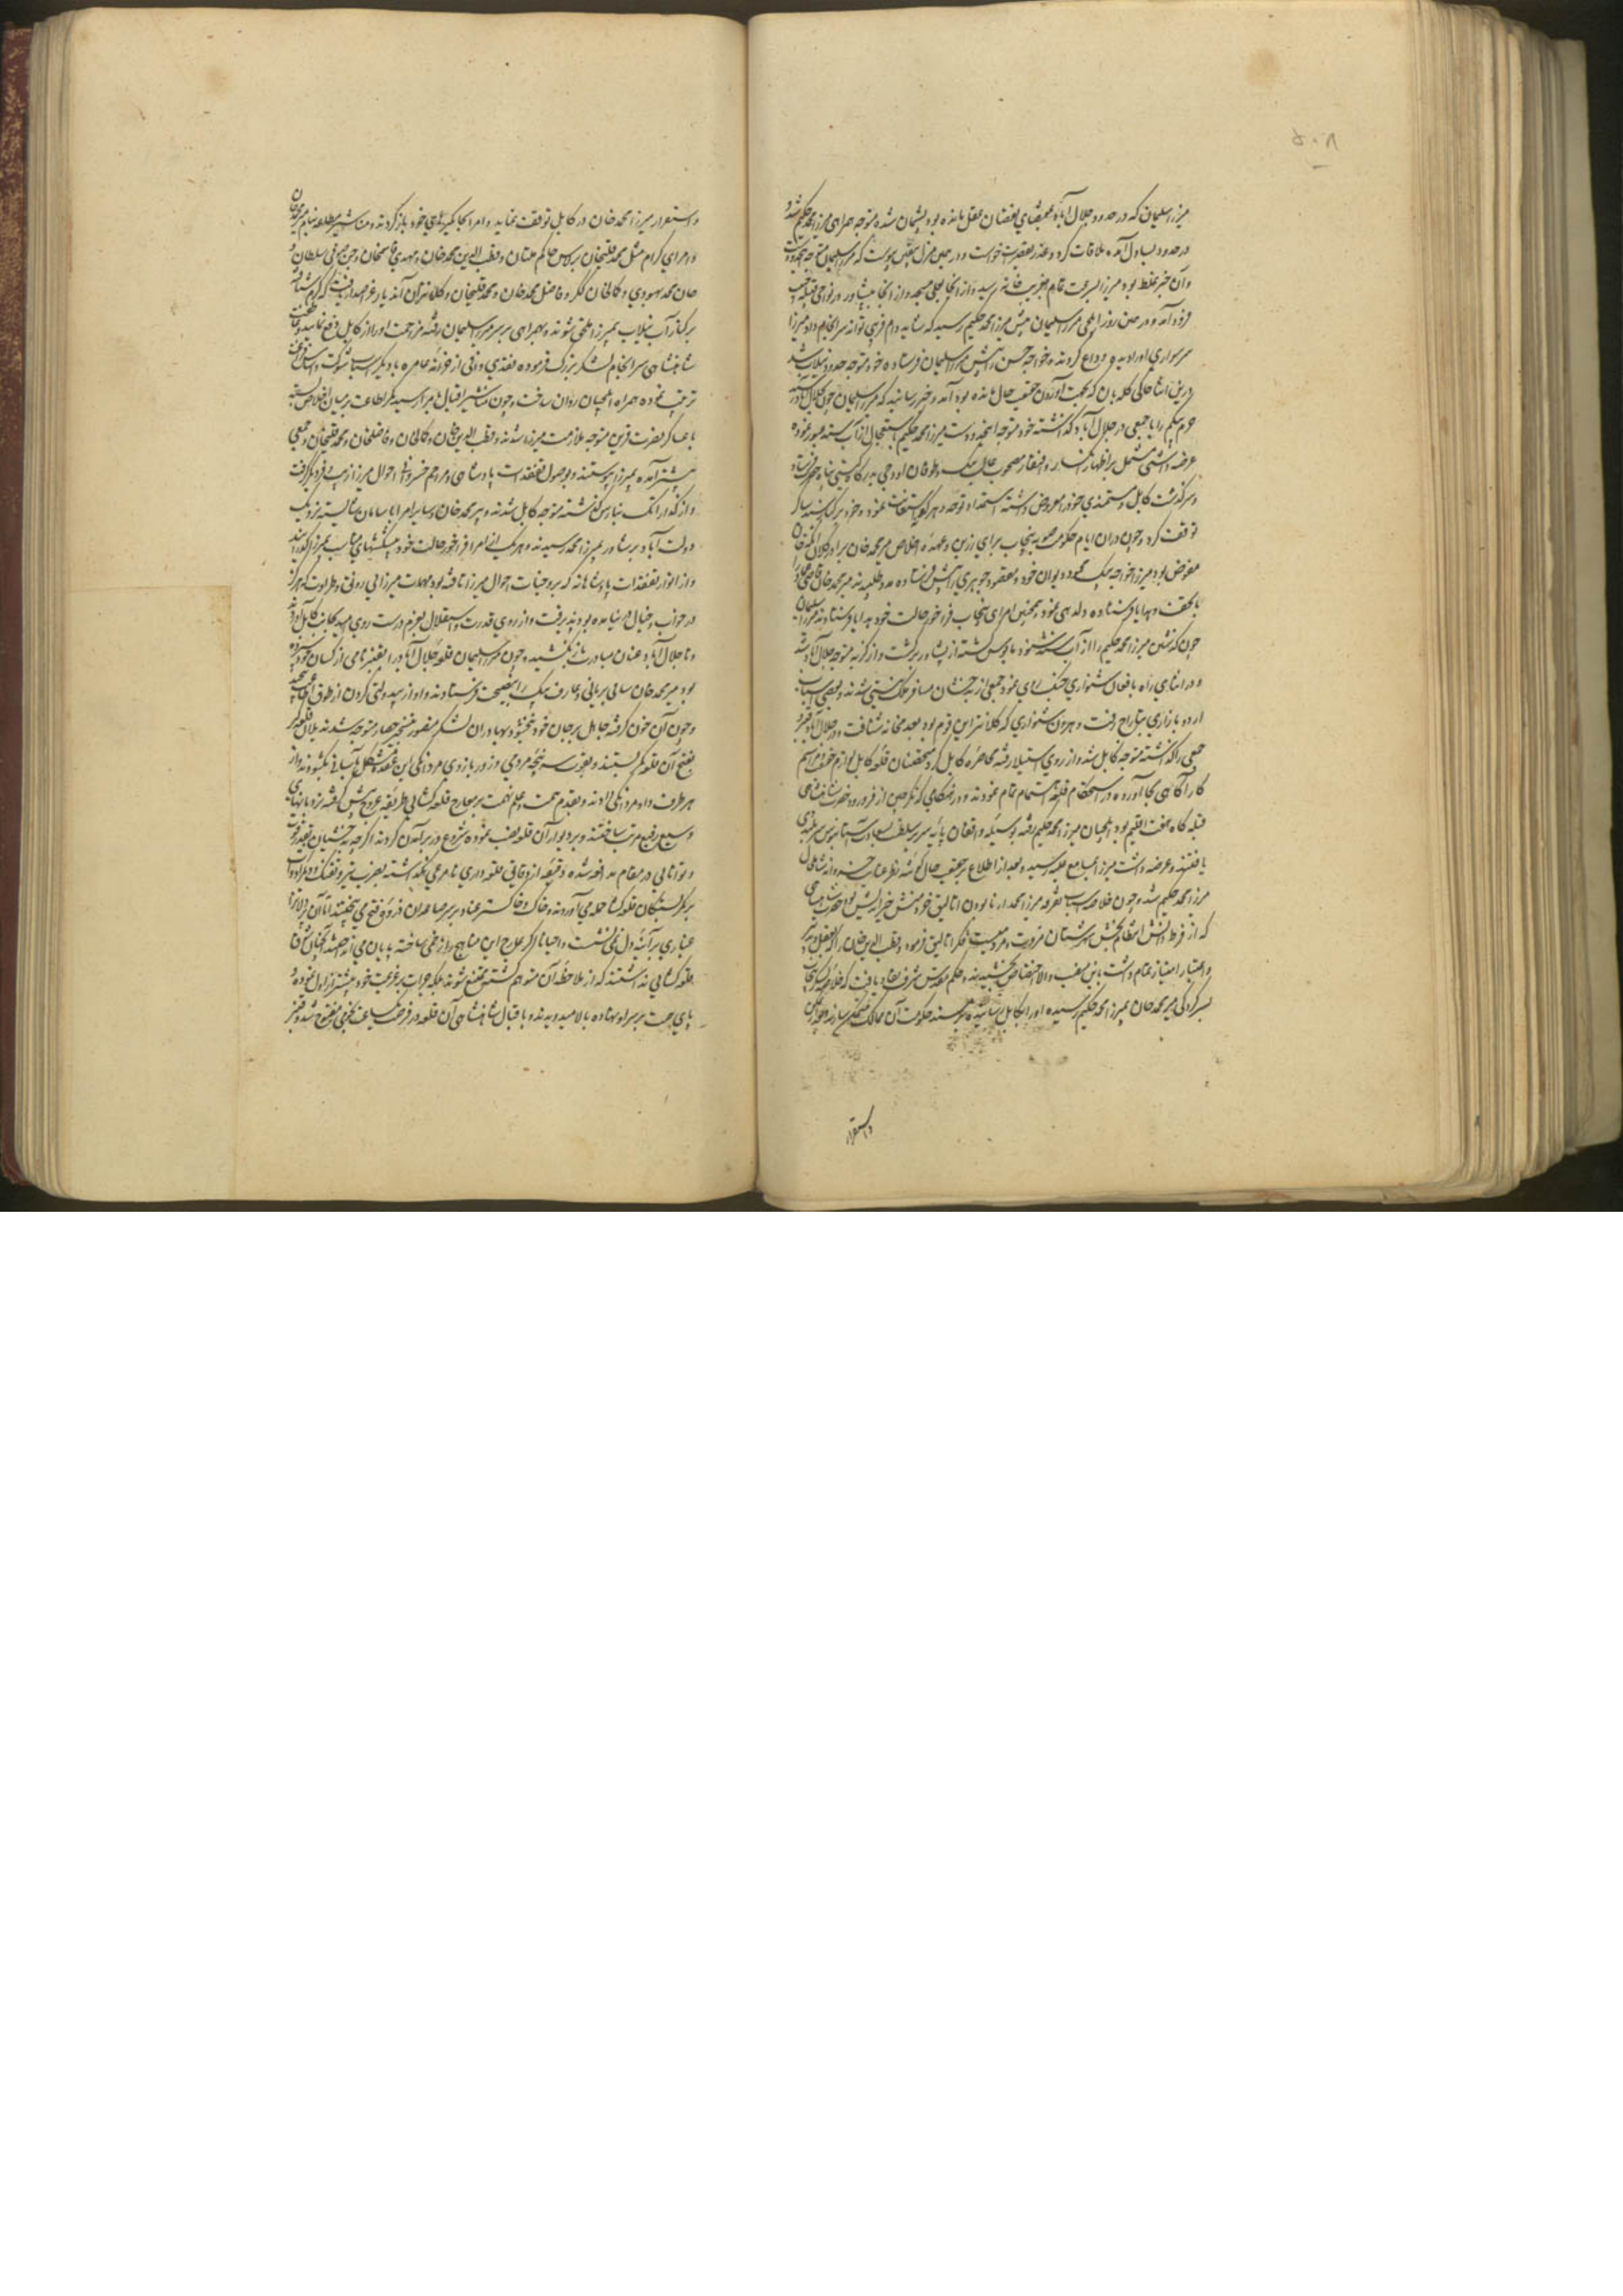 ۵۰۸
میرزا سلیمان که در حدود جلال آباد بمقتضای بی عقل مانده بود پشیمان شده متوجه همراهی میرزا محمد حکیم شد و
در حدود بساول آمده ملاقات کرد و عذر تقصیرت خواست و در همین منزل بیقین پیوست که میرزا سلیمان متوجه این حدود است
و آن خبر غلط بود میرزا بسرعت تمام بغریب خانه رسید و از آنجا بعلی مسجد و از آنجا به پشاور در نواحی
فرود آمد و در همین روز ایلچی میرزا سلیمان پیش میرزا محمد حکیم رسید که شاید دام فریبی تواند سرانجام داد میرزا
سر سواری او را دیده وداع کردند و خواجه حسن را پیش میرزا سلیمان فرستاده خود متوجه حدود نیلاب شد
درین اثنا حاکی گله بان که بجهت آوردن حقیقت حال مانده بود آمد و خبر رسانید که میرزا سلیمان چون بجلال آباد رسید
حرم بیگم را با جمعی در جلال آباد گذاشته خود متوجه اینحدود است میرزا محمد حکیم باستعجال از آب سند عبور نموده
عرضه داشتی مشتمل بر اظهار انکسار و افتقار مصحوب بیک و طوفان اوجی بدرگاه گیتی پناه فرستاد
و سرگذشت کابل و مستمندی خود را معروض داشته استمداد توجه و استعانت نمود و خود بر کنار سند
توقف کرد و چون در آن ایام حکومت صوبه پنجاب برای رزین و عهده اخلاص میر محمد خان برادر کلان اتکه خان
مفوض بود میرزا خواجه بیک محمود دیوان خود و مقصود جوهری را پیش او فرستاده مدد طلبید میر محمد خان
با تحف و هدایا فرستاده دلدهی نمود و همچنین امرای پنجاب فراخور حالت خود هدایا فرستادند میرزا سلیمان
چون گذشتن میرزا محمد حکیم را از آب سند شنود مایوس گشته از پشاور برگشت و از کربه متوجه جلال آباد شد
و در اثنای راه با افغان شنواری جنگ روی نمود جمعی از بدخشان مسافر ملک نیستی شدند و بعضی اسباب
اردو بازاری بتاراج رفت و هرون شنواری که کلانتر این قوم بود بعدمخانه شتافت و در جلال آباد قنبر و
جمعی را گذاشته متوجه کابل شد و از روی استیلا رفته محاصره کابل کرد متحصنان قلعه کابل لوازم حزم و مراسم
کارآگاهی بجا آورده در استحکام قلعه اهتمام تمام نمودند و در هنگامی که نگرچین از فر ورود حضرت شاهنشاهی
قبله گاه هفت اقلیم بود ایلچیان میرزا محمد حکیم رفته بوسیله واقفان پایه سریر سلطنت بسعادت آستانبوس سربلندی
یافتند و عرضه داشت میرزا بمسامع علیه رسید و بعد از اطلاع بر حقیقت حال گوشه نظر عنایت خسروانه شامل حال
میرزا محمد حکیم شد و چون خلاصه اسباب تفرقه میرزا محمد حکیم نابودن اتالیق خردمنش خیراندیش بود حضرت شاهنشاهی
که از فرط دانش انتظام بخش شبستان مروت و مردمیست فکر اتالیق فرمود و قطب الدین خان را که بعقل و تدبیر
و اعتبار امتیاز تمام داشت باین منصب والا اختصاص بخشیدند و حکم مقدس شرف نفاذ یافت که خلاصه لشکر پنجاب
بسرکردگی میر محمد خان بمیرزا محمد حکیم رسیده او را بکابل رسانیده بر مسند حکومت آن ممالک متمکن سازند و قطب الدین
و استقرار
و استقرار میرزا محمد خان در کابل توقف نماید و امرا بجایگیرهای خود بازگردند و مناشیر مطاعه بنام میر محمد خان
و امرای کرام مثل محمد قلیخان برلاس حاکم ملتان و قطب الدین محمد خان و مهدی قاسمخان و حسن صوفی سلطان و
جان محمد بهسودی و کمالخان گکر و فاضل محمد خان و محمد قلیخان و کلانتران آندیار عز اصدار یافت که
بر کنار آب نیلاب بمیرزا ملحق شوند و بهمراهی بر سر میرزا سلیمان رفته مزاحمت او را از کابل دفع نمایند
شاهنشاهی سرانجام لشکر بزرگ فرموده نقدی وافی از خزانه عامره با دیگر اسباب شوکت
ترتیب نموده همراه ایلچیان روان ساخت و چون مناشیر اقبال بامرا رسید کمر اطاعت بر میان اخلاص بسته
با عساکر نصرت قرین متوجه ملازمت میرزا شدند و قطب الدین خان و کمالخان و فاضلخان و محمد قلیخان و جمعی
پیشتر آمده بمیرزا پیوستند و بوصول تفقدات پادشاهی و مراحم خسروانه احوال میرزا از سر نو فروغ دیگر گرفت
و از گذر اتک بنارس گذشته متوجه کابل شدند و میر محمد خان و سایر امرا با سامان شایسته نزدیک
دولت آباد پرشاور بمیرزا محمد رسیدند و هر یک از امرا فراخور حالت خود پیشکشهای مناسب بمیرزا گذرانیدند
و از انوار تفقدات پادشاهانه که بر وجنات احوال میرزا تافته بود مهمات میرزایی رونق و طراوت که هرگز
در خواب و خیال در نیامده بود پذیرفت و از روی قدرت و استقلال بعزم درست روی امید بجانب کابل آوردند
و تا جلال آباد عنان مبادرت بازنکشید و چون میرزا سلیمان قلعه جلال آباد را بقنبر نامی از کسان خود سپرده
بود میر محمد خان سامی پریانی و عارف بیک را بنصیحت فرستادند و او از بیدولتی گردن از طوق
و چون آن خون گرفته جاهل بر جان خود نبخشود بهادران لشکر منصور بتسخیر حصار متوجه شدند یلان قلعه گیر
بفتح آن قلعه کمر بستند و بقوت سرپنجه مردمی و زور بازوی مردانگی این عقده مشکل بآسانی بگشودند و از
هر طرف داد مردانگی دادند و بقدم همت و علم نهمت بر معارج قلعه کشائی طریقه عروج پیش گرفته نردبانهای
وسیع رفیع مرتب ساختند و بر دیوار آن قلعه نصب نموده شروع در برآمدن کردند اگرچه بدخشیان بقدر قوت
و توانایی در مقام مدافعه شده دقیقه از دقایق قلعه داری نامرعی نگذاشتند بضرب تیر و تفنگ
بر کمر بستگان قلعه کشا حمله می آوردند و خاک و خاکستر عناد بر سر صاعدان ذروه فتح می بیختند اما آن
غباری بر آئینه دل نمی نشست و احیانا اگر علاج این مناهج را زخمی ساخته پایان می انداختند
قلعه کشایی نداشتند که از ملاحظه آن متوهم گشته ممتنع شوند بلکه جرات بر عزیمت خود بیشتر از اول نموده
پای همت بر سر او نهاده بالا میدویدند و باقبال شاهنشاهی آن قلعه در فرصت یکساعت نجومی مفتوح شد و قنبر